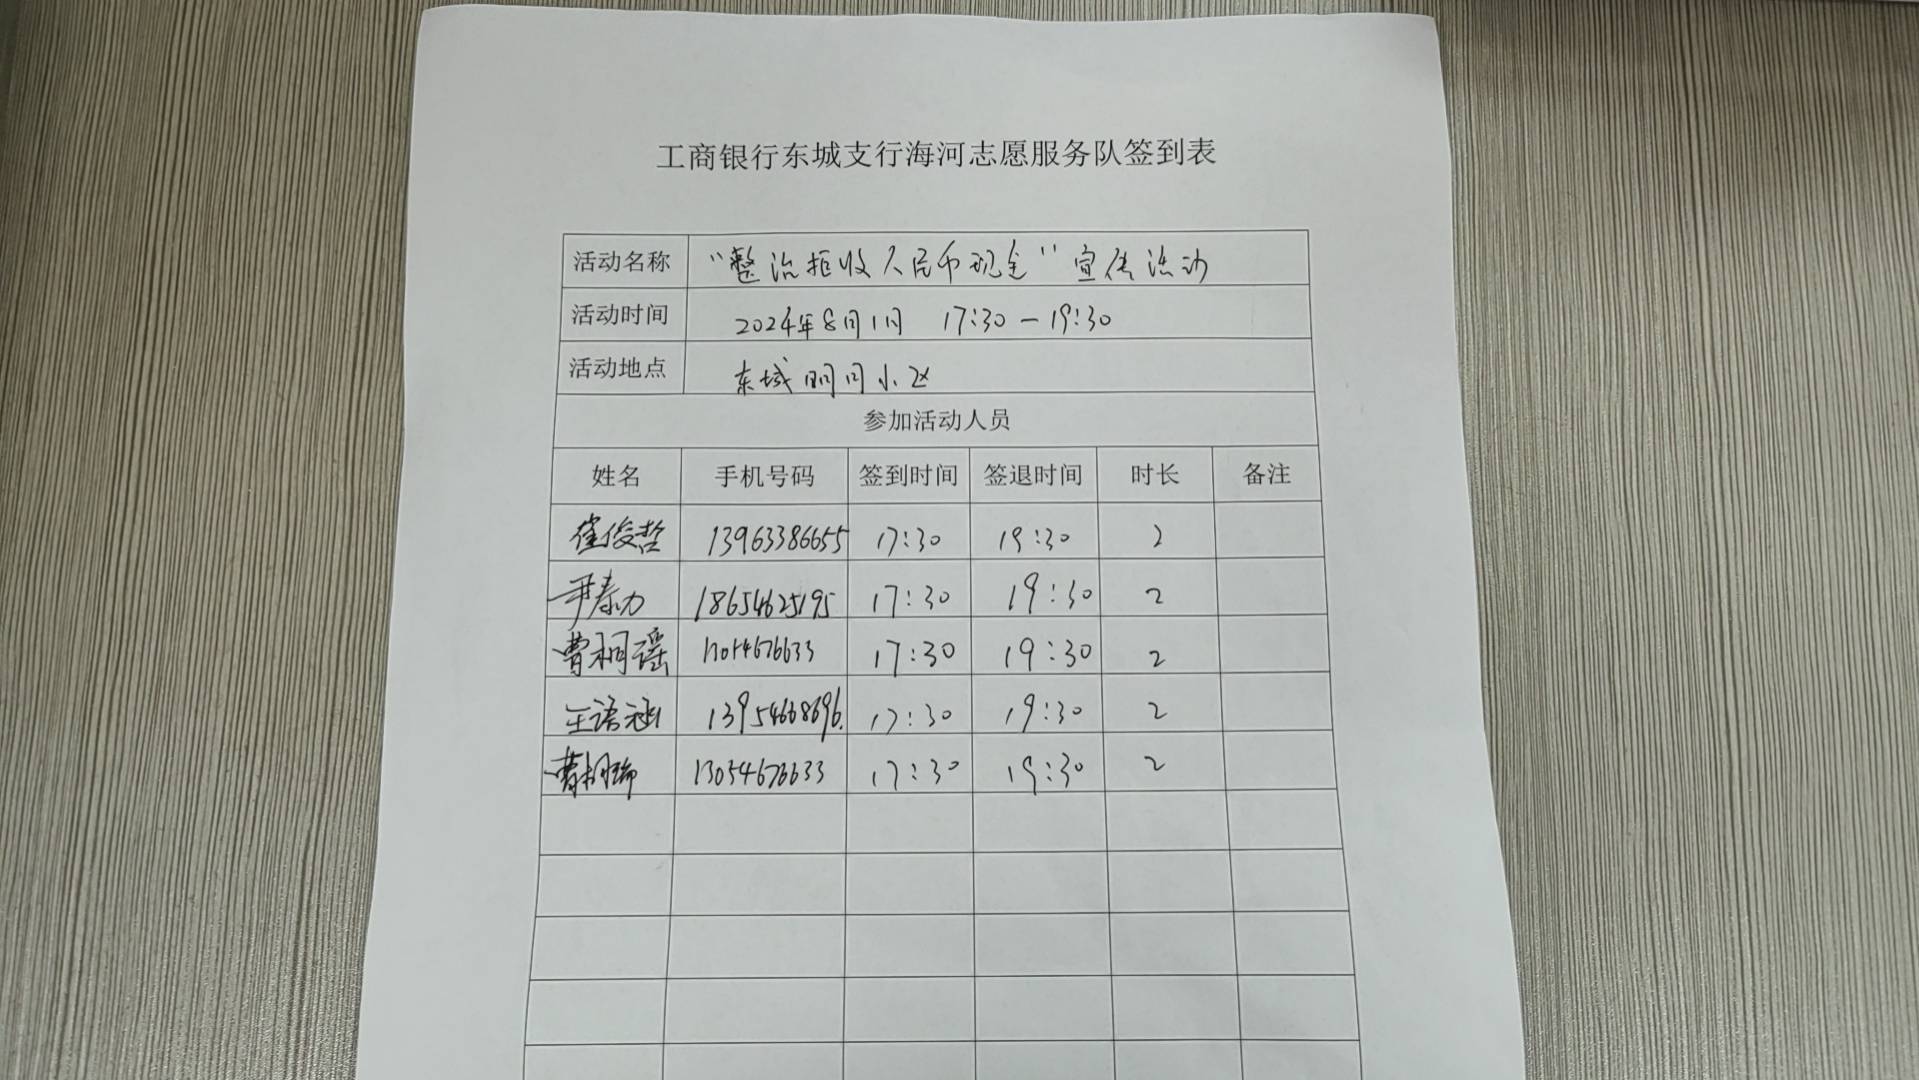 工商银行东城支行海河志愿服务队签到表
活动名称 “整治拒收人民币现金”宣传活动
活动时间 2024年8月1日 17:30-19:30
活动地点 东城明月小区
参加活动人员
姓名 手机号码 签到时间 签退时间 时长 备注
崔俊哲 13963386655 17:30 19:30 2
尹春力 18654625195 17:30 19:30 2
曹桐谣 17:30 19:30 2
王语涵 13954668696. 17:30 19:30 2
曹桐瑞 13054676633 17:30 19:30 2